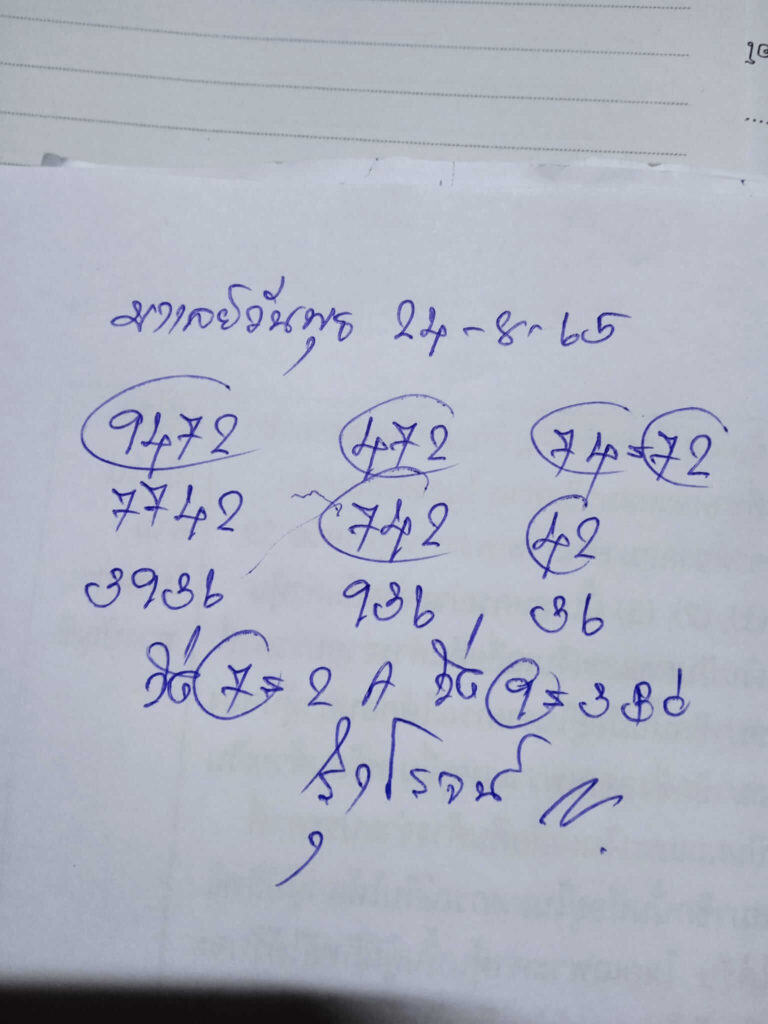 มาเลย์วันพุธ 24-8-65
9472 472 74=72
7742 742 42
3936 936 36
วิ่ง 7=2 A วิ่ง 9=3
รุ่งโรจน์